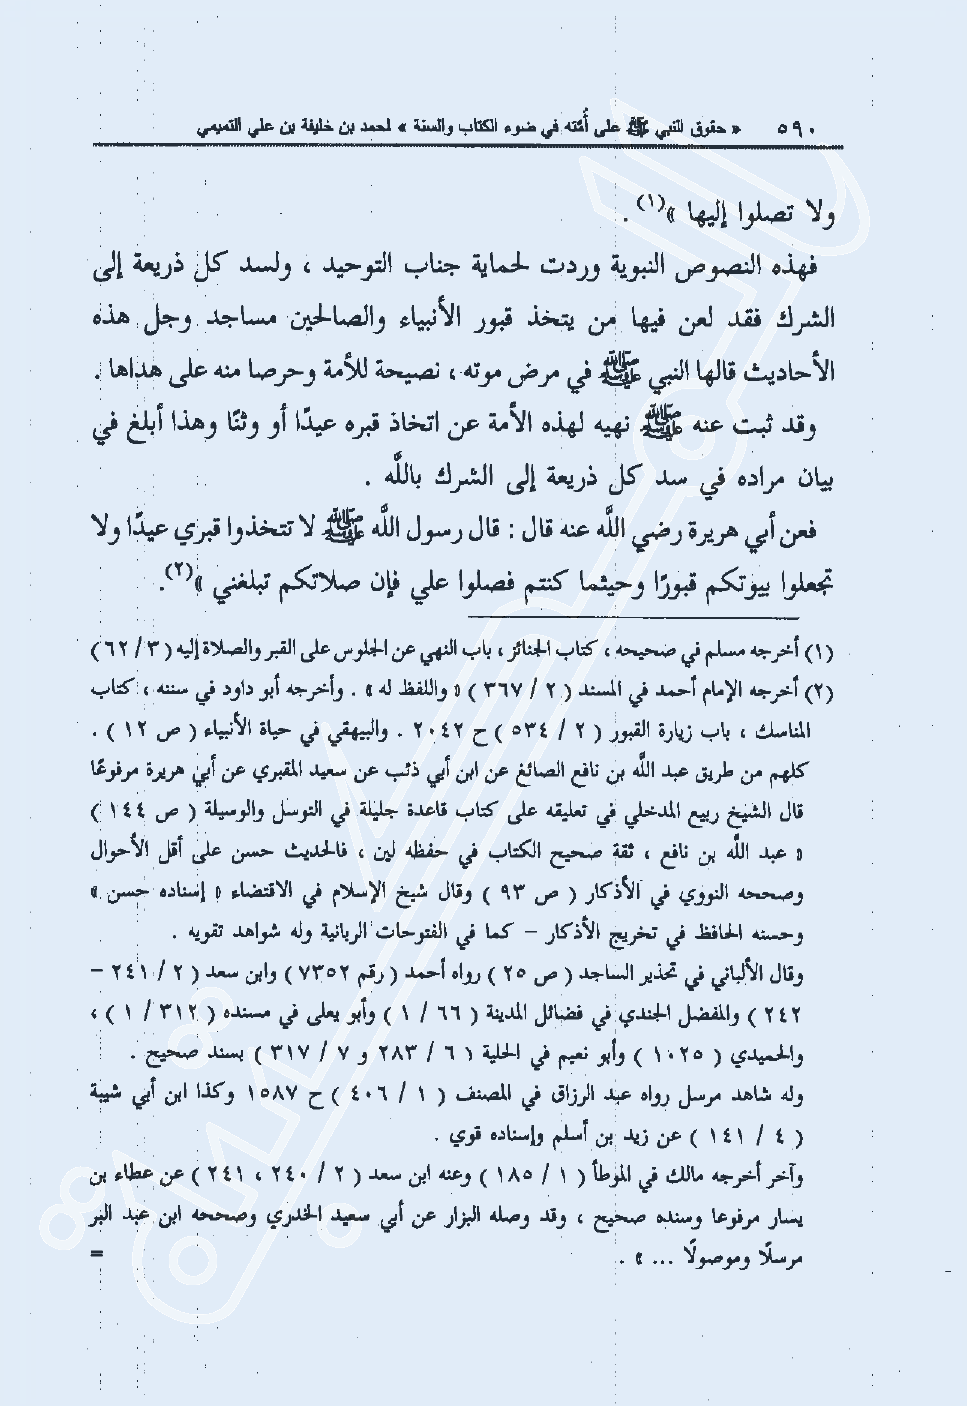 ٥٩٠ « حقوق النبي ﷺ على أُمَّته في ضوء الكتاب والسنة » لمحمد بن خليفة بن علي التميمي
ولا تصلوا إليها »(١) .
فهذه النصوص النبوية وردت لحماية جناب التوحيد ، ولسد كل ذريعة إلى
الشرك فقد لعن فيها من يتخذ قبور الأنبياء والصالحين مساجد وجل هذه
الأحاديث قالها النبي ﷺ في مرض موته ، نصيحة للأمة وحرصا منه على هداها .
وقد ثبت عنه ﷺ نهيه لهذه الأمة عن اتخاذ قبره عيدًا أو وثنًا وهذا أبلغ في
بيان مراده في سد كل ذريعة إلى الشرك باللَّه .
فعن أبي هريرة رضي اللَّه عنه قال : قال رسول اللَّه ﷺ لا تتخذوا قبري عيدًا ولا
تجعلوا بيوتكم قبورًا وحيثما كنتم فصلوا علي فإن صلاتكم تبلغني »(٢).
(١) أخرجه مسلم في صحيحه ، كتاب الجنائز ، باب النهي عن الجلوس على القبر والصلاة إليه ( ٣ / ٦٢ )
(٢) أخرجه الإمام أحمد في المسند ( ٢ / ٣٦٧ ) « واللفظ له » . وأخرجه أبو داود في سننه ، كتاب
المناسك ، باب زيارة القبور ( ٢ / ٥٣٤ ) ح ٢٠٤٢ . والبيهقي في حياة الأنبياء ( ص ١٢ ) .
كلهم من طريق عبد اللَّه بن نافع الصائغ عن ابن أبي ذئب عن سعيد المقبري عن أبي هريرة مرفوعًا
قال الشيخ ربيع المدخلي في تعليقه على كتاب قاعدة جليلة في التوسل والوسيلة ( ص ١٤٤ )
« عبد اللَّه بن نافع ، ثقة صحيح الكتاب في حفظه لين ، فالحديث حسن على أقل الأحوال
وصححه النووي في الأذكار ( ص ٩٣ ) وقال شيخ الإسلام في الاقتضاء « إسناده حسن »
وحسنه الحافظ في تخريج الأذكار – كما في الفتوحات الربانية وله شواهد تقويه .
وقال الألباني في تحذير الساجد ( ص ٢٥ ) رواه أحمد ( رقم ٧٣٥٢ ) وابن سعد ( ٢ / ٢٤١ –
٢٤٢ ) والمفضل الجندي في فضائل المدينة ( ٦٦ / ١ ) وأبو يعلى في مسنده ( ٣١٢ / ١ ) ،
والحميدي ( ١٠٢٥ ) وأبو نعيم في الحلية ( ٦ / ٢٨٣ و ٧ / ٣١٧ ) بسند صحيح .
وله شاهد مرسل رواه عبد الرزاق في المصنف ( ١ / ٤٠٦ ) ح ١٥٨٧ وكذا ابن أبي شيبة
( ٤ / ١٤١ ) عن زيد بن أسلم وإسناده قوي .
وآخر أخرجه مالك في الموطأ ( ١ / ١٨٥ ) وعنه ابن سعد ( ٢ / ٢٤٠ ، ٢٤١ ) عن عطاء بن
يسار مرفوعا وسنده صحيح ، وقد وصله البزار عن أبي سعيد الخدري وصححه ابن عبد البر
مرسلًا وموصولًا ... » . =